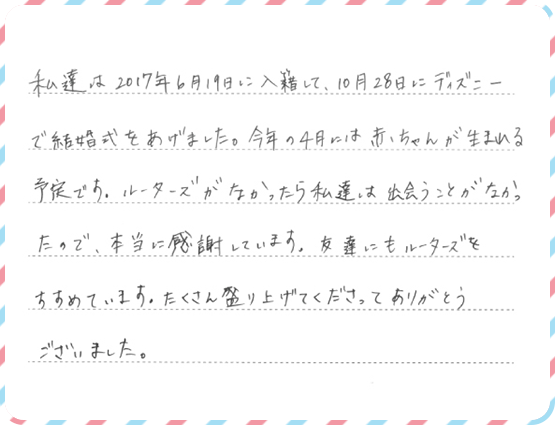 私達は2017年6月19日に入籍して、10月28日にディズニー
で結婚式をあげました。今年の4月には赤ちゃんが生まれる
予定です。ルーターズがなかったら私達は出会うことがなかっ
たので、本当に感謝しています。友達にもルーターズを
すすめています。たくさん盛り上げてくださってありがとう
ございました。